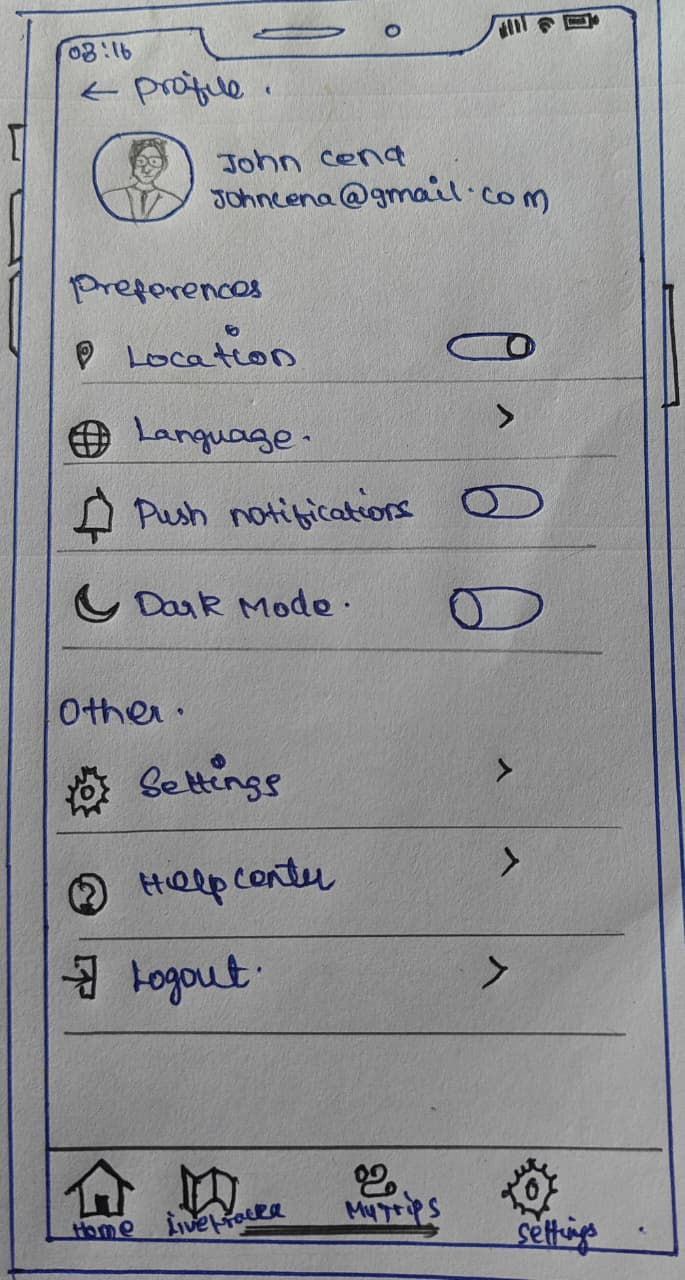 03:16
← Profile.
John cena
Johncena@gmail.com
Preferences
Location
Language.
Push notifications
Dark Mode.
Other.
Settings
Help center
Logout.
Home LiveTracer MyTrips Settings